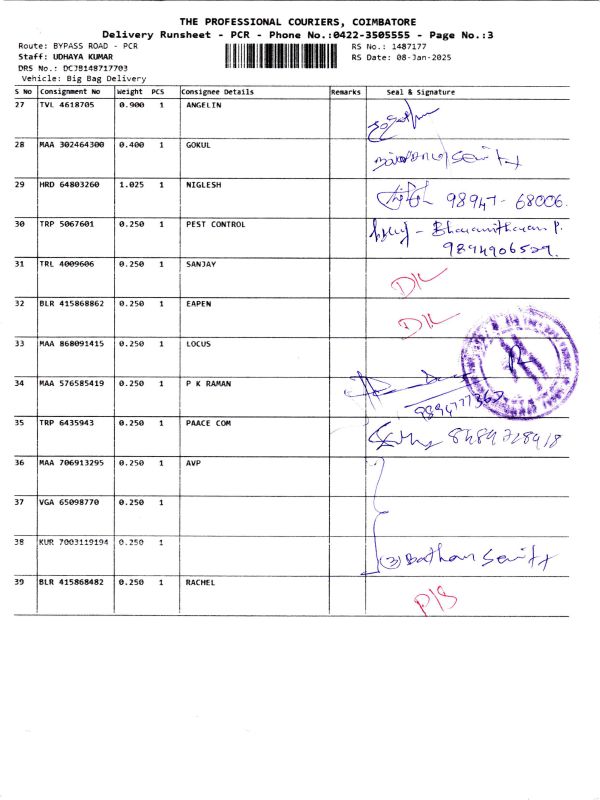 THE PROFESSIONAL COURIERS, COIMBATORE
Delivery Runsheet - PCR - Phone No.:0422-3505555 - Page No.:3
Route: BYPASS ROAD - PCR RS No.: 1487177
Staff: UDHAYA KUMAR RS Date: 08-Jan-2025
DRS No.: DCJB148717703
Vehicle: Big Bag Delivery
S No Consignment No Weight PCS Consignee Details Remarks Seal & Signature
27 TVL 4618705 0.900 1 ANGELIN
28 MAA 302464300 0.400 1 GOKUL
29 HRD 64803260 1.025 1 NIGLESH 98947-68006
30 TRP 5067601 0.250 1 PEST CONTROL
9894906529.
31 TRL 4009606 0.250 1 SANJAY
32 BLR 415868862 0.250 1 EAPEN
33 MAA 868091415 0.250 1 LOCUS
34 MAA 576585419 0.250 1 P K RAMAN
35 TRP 6435943 0.250 1 PAACE COM
36 MAA 706913295 0.250 1 AVP
37 VGA 65098770 0.250 1
38 KUR 7003119194 0.250 1 (3)
39 BLR 415868482 0.250 1 RACHEL P/S